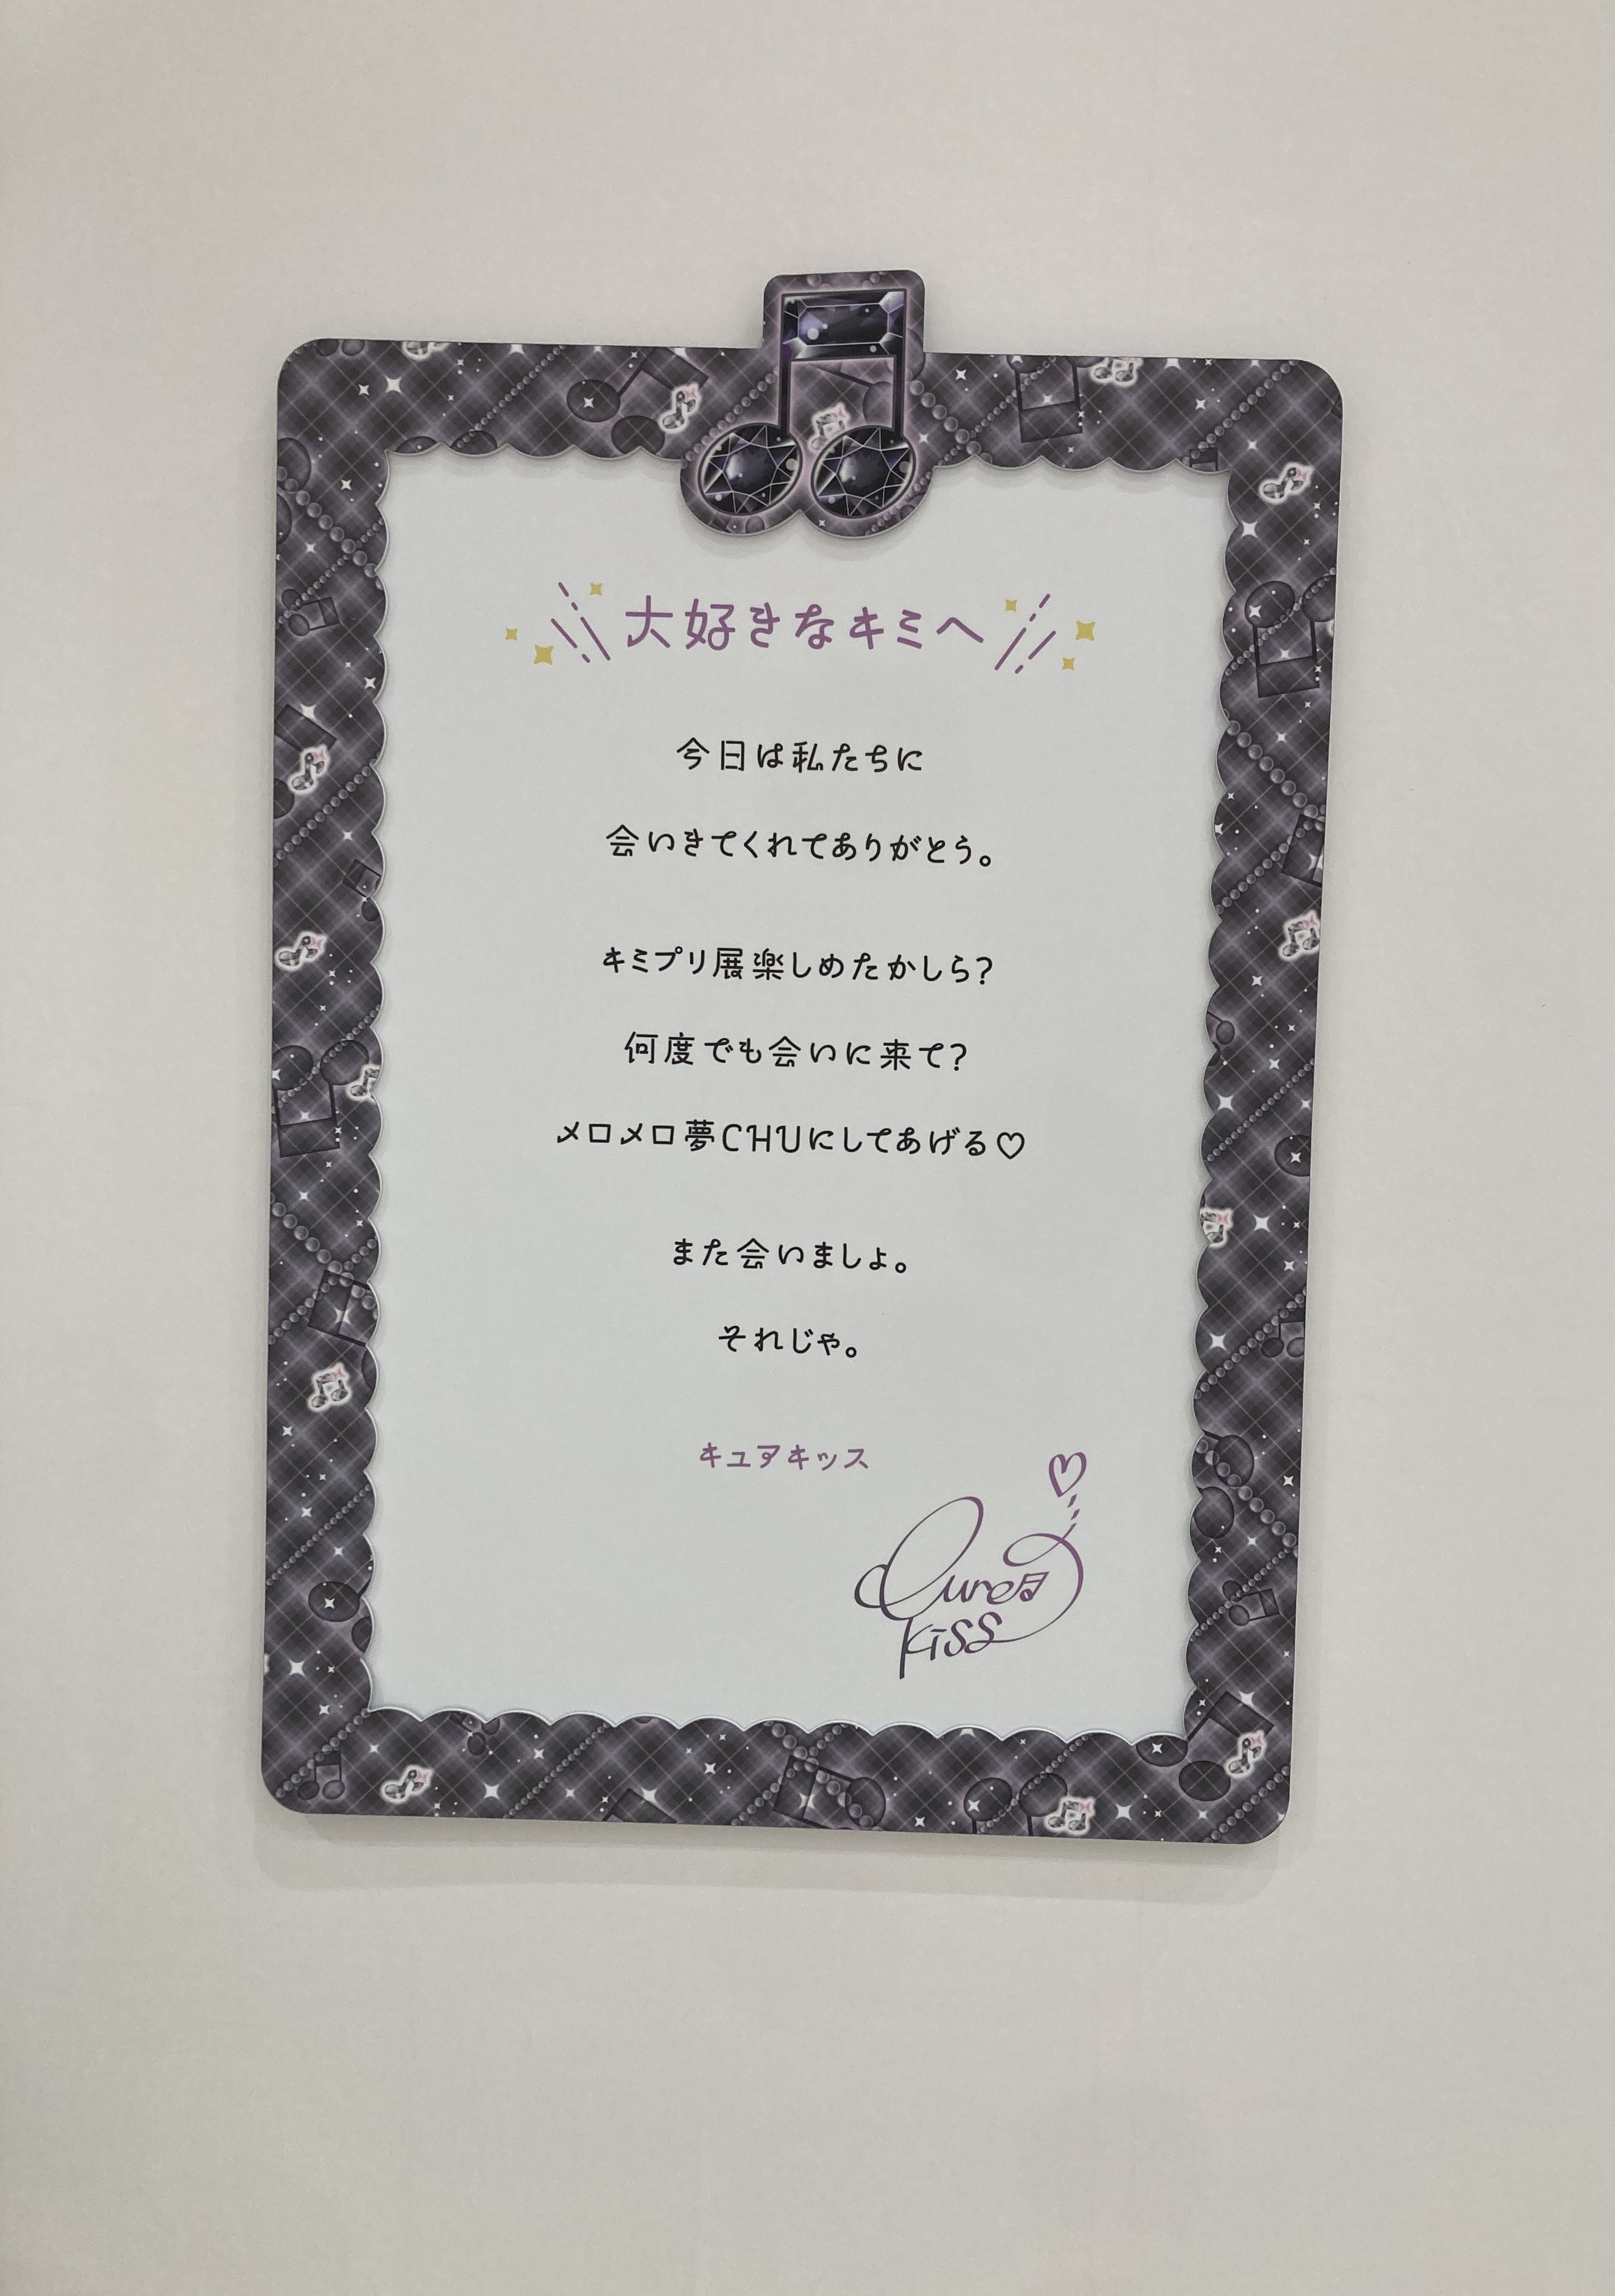 大好きなキミへ
今日は私たちに
会いきてくれてありがとう。
キミプリ展楽しめたかしら?
何度でも会いに来て?
メロメロ夢CHUにしてあげる♡
また会いましょ。
それじゃ。
キュアキッス
Cure
Kiss